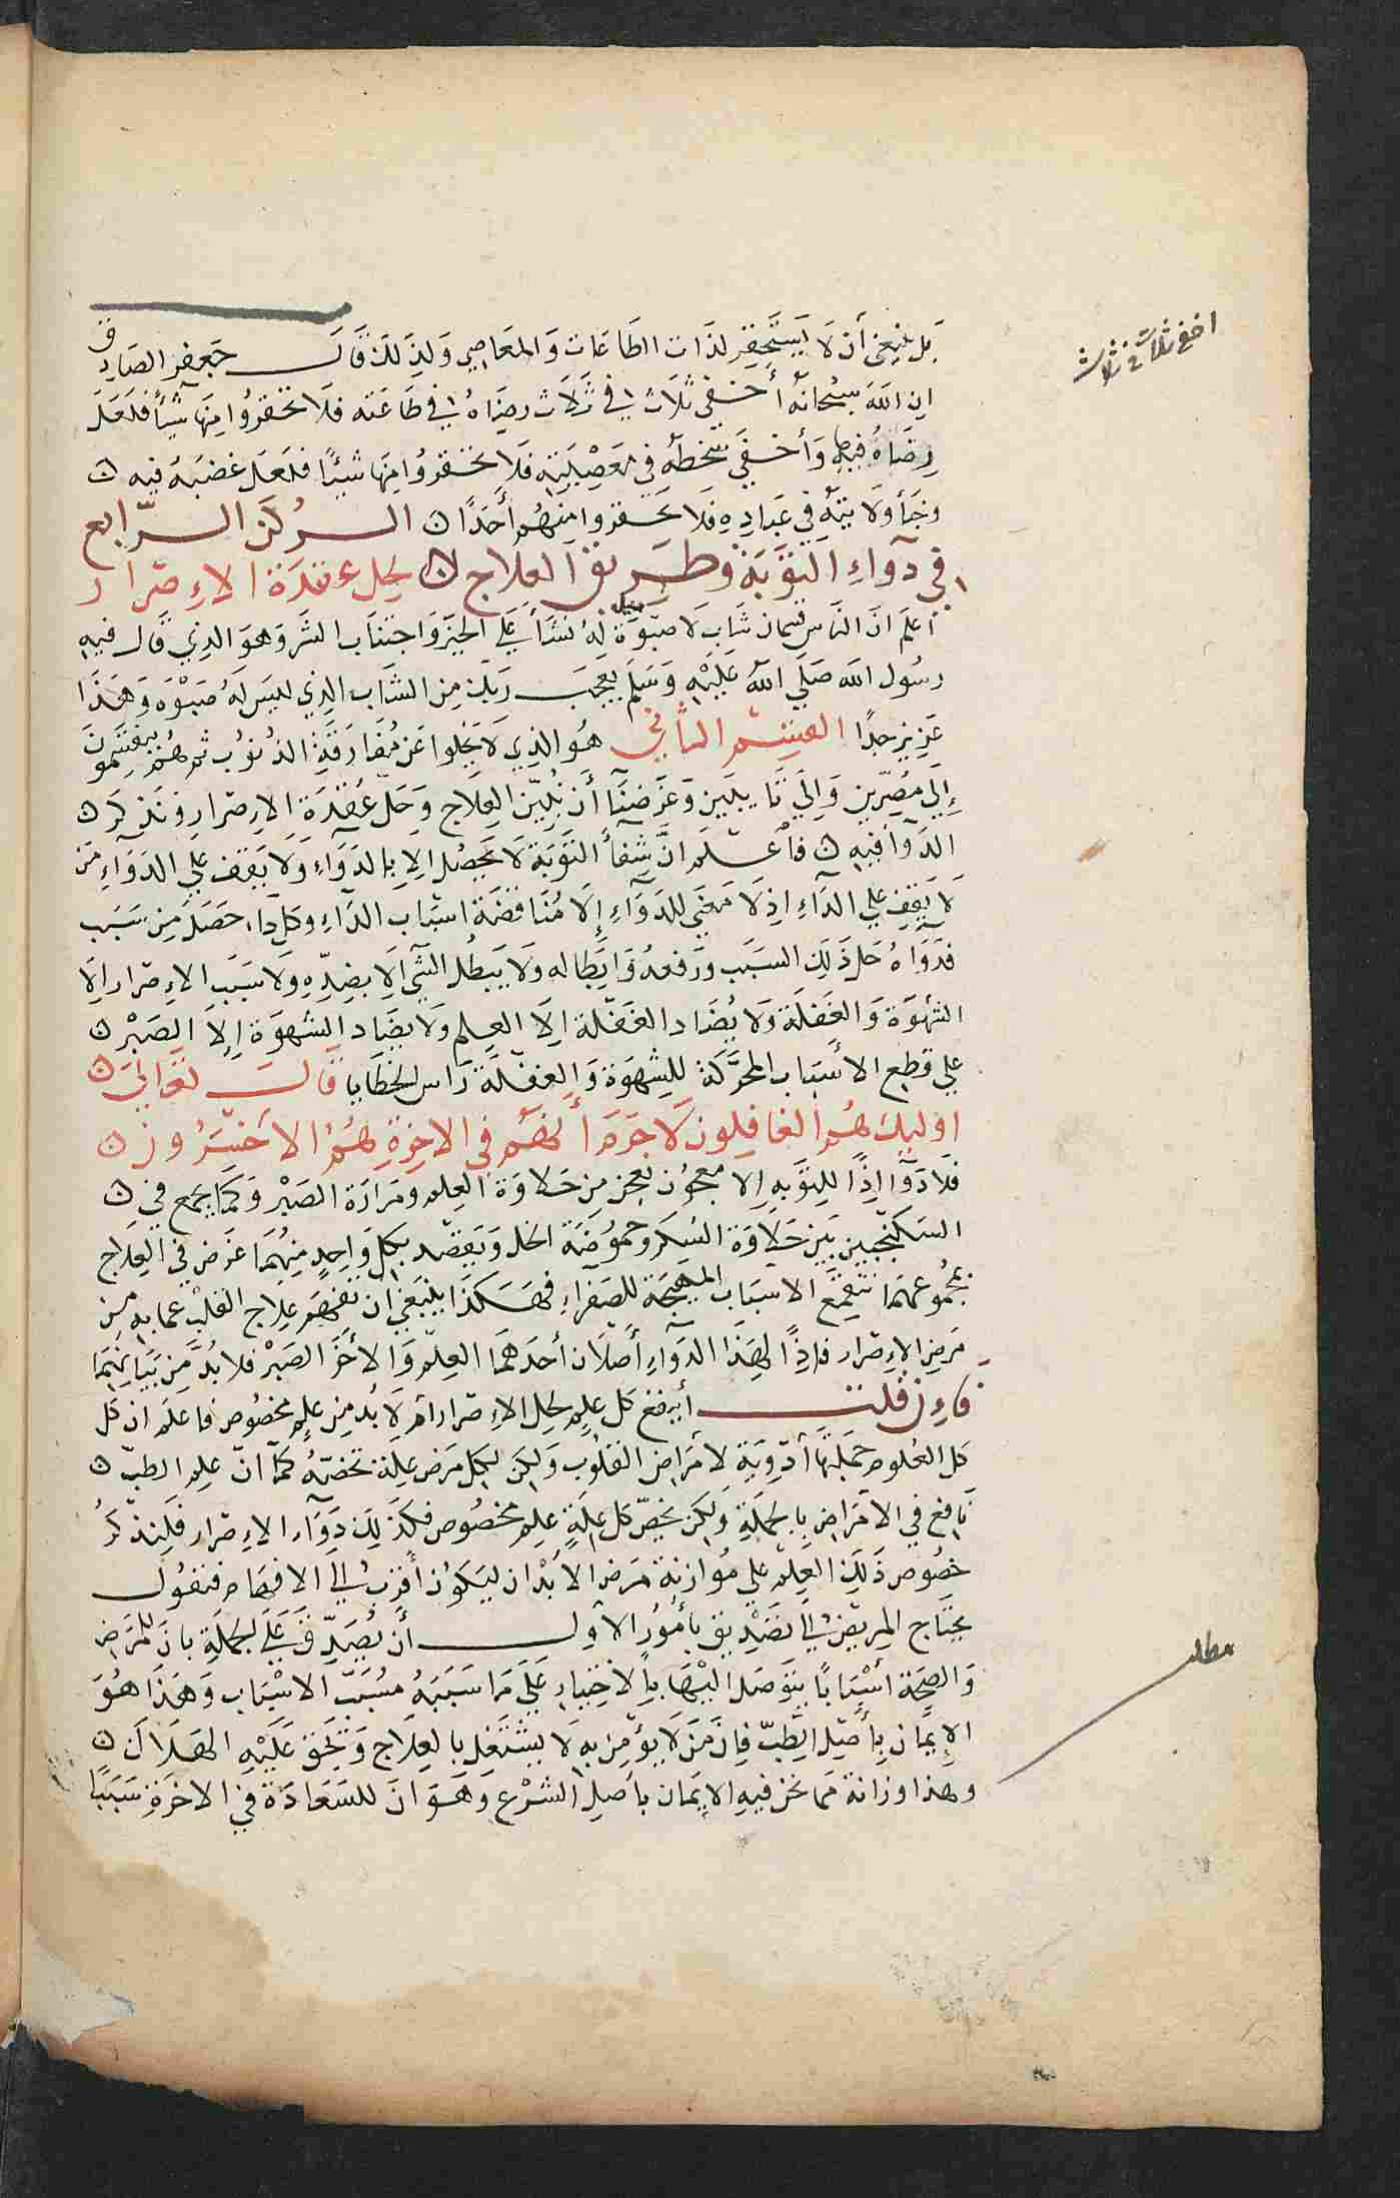 بل ينبغي أن لا يستحقر لذات الطاعات والمعاصي ولذلك قال جعفر الصادق
ان الله سبحانه أخفى ثلاث في ثلاث رضاه في طاعته فلا تحقروا منها شيأ فلعل
رضاه فيه وأخفى سخطه في معصيته فلا تحقروا منها شيئا فلعل غضبه فيه
وخبأ ولايته في عباده فلا تحقروا منهم أحدا الركن الرابع
في دوآء التوبة وطريق العلاج لحل عقدة الإصرار
اعلم ان الناس قسمان شاب لا صبوة له نشأ على الخير واجتناب الشر وهو الذي قال فيه
رسول الله صلى الله عليه وسلم يعجب ربك من الشاب الذي ليس له صبوه وهذا
عزيز جدا القسم الثاني هو الذي لا يخلوا عن مقارفة الذنوب ثم هم ينقسمون
إلى مصرين وإلى تايبين وغرضنا أن نبين العلاج وحل عقدة الإصرار ونذكر
الدوآ فيه فاعلم ان شفأ التوبة لا يحصل الا بالدواء ولا يقف على الدوآء من
لا يقف على الدآء اذ لا معنى للدوآء إلا مناقضة اسباب الدآء وكل دآء حصل من سبب
فدواه حل ذلك السبب ورفعه وابطاله ولا يبطل الشي الا بضده ولا سبب الإصرار الا
الشهوة والغفلة ولا يضاد الغفلة الا العلم ولا يضاد الشهوة إلا الصبر
على قطع الأسباب المحركة للشهوة والغفلة راس الخطايا قال تعالى
اوليك هم الغافلون لا جرم أنهم في الاخرة هم الاخسرون
فلا دوآ اذا للتوبه الا معجون يعجن من حلاوة العلم ومرارة الصبر وكما يجمع في
السكنجبين بين حلاوة السكر وحموضة الخل ويقصد بكل واحد منهما غرض في العلاج
بمجموعهما فتقمع الاسباب المهيجة للصفراء فهكذا ينبغي ان تفهم علاج القلب عما به من
مرض الإصرار فإذا لهذا الدوآء أصلان أحدهما العلم والأخر الصبر فلا بد من بيانهما
فإن قلت أينفع كل علم لحل الإصرار أم لا بد من علم مخصوص فاعلم ان كل
كل العلوم جملتها أدوية لأمراض القلوب ولكن لكل مرض علة تخصه كما انّ علم الطب
نافع في الامراض بالجملة ولكن يخص كل علة علم مخصوص فكذلك دوآء الإصرار فلنذكر
خصوص ذلك العلم على موازنة مرض الأبدان ليكون أقرب إلى الافهام فنقول
يحتاج المريض إلى تصديق بأمور الاول أن يصدق على الجملة بان للمرض
والصحة اسبابا يتوصل اليها بالاختيار على ما سببه مسبب الاسباب وهذا هو
الإيمان بأصل الطب فان من لا يؤمن به لا يشتغل بالعلاج ويحق عليه الهلاك
وهذا وزانة مما نحن فيه الإيمان باصل الشرع وهو ان للسعادة في الاخرة سببا
اخفى ثلاث في ثلاث
مطلب